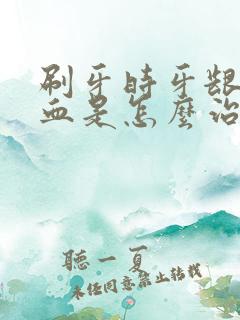 刷牙時牙齦
血是怎麼治
聽一夏
未經同意禁止轉載